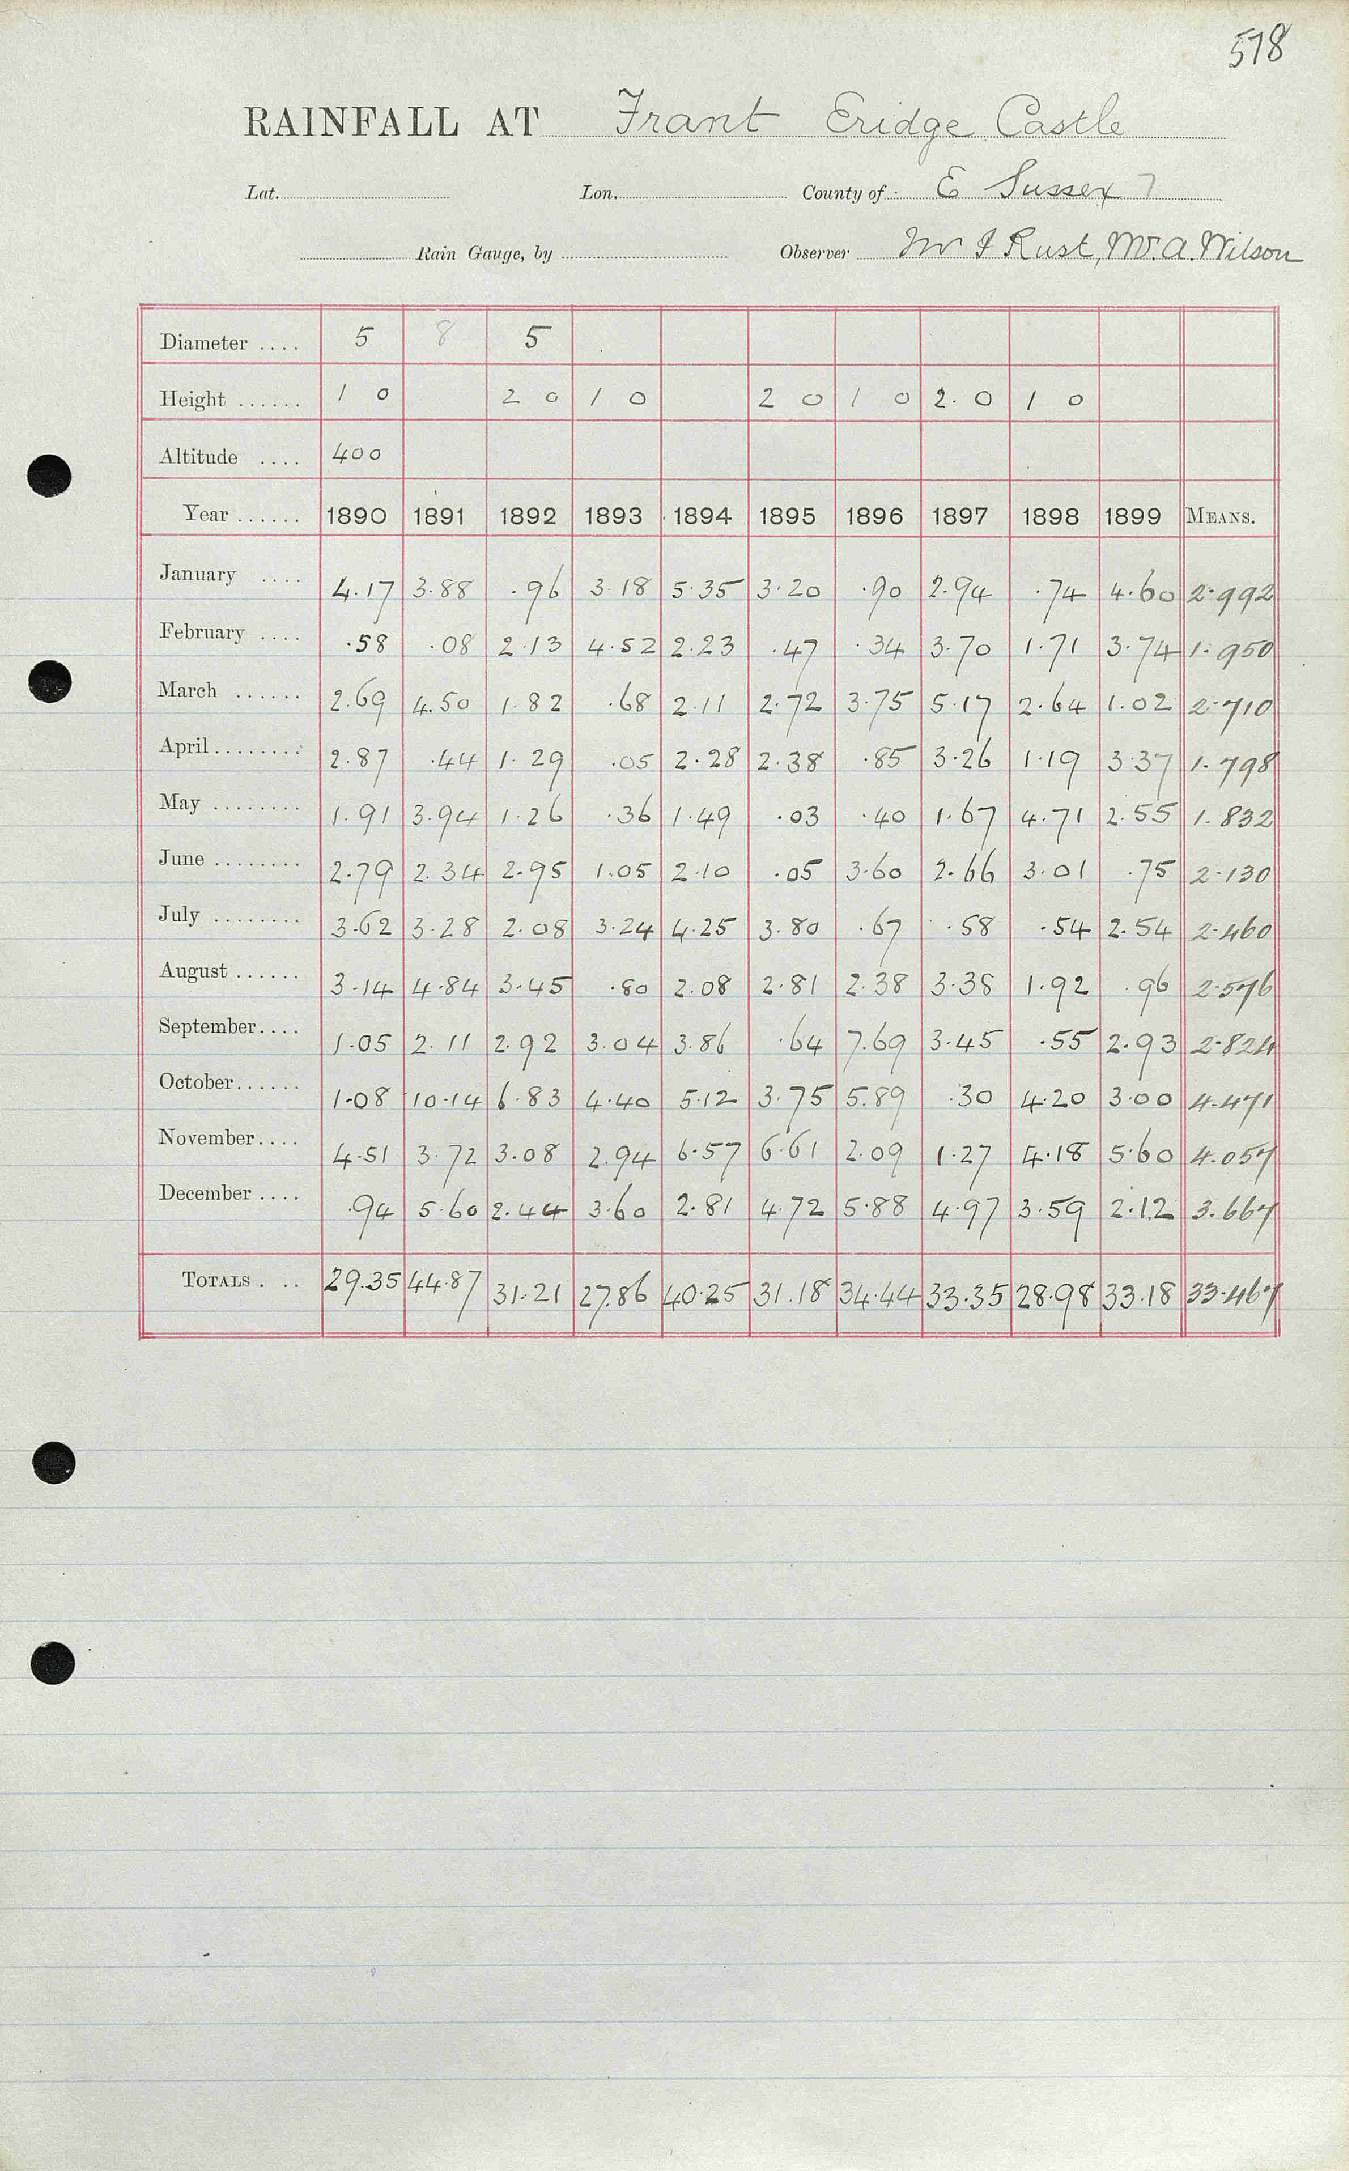 578
RAINFALL AT Frant Eridge Castle
Lat. Lon. County of E Sussex 7
Rain Gauge, by Observer Mr J Rust, Mr. A. Wilson
Diameter .... 5 8 5
Height ...... 1 0 2 0 1 0 2 0 1 0 2. 0 1 0
Altitude .... 400
Year ...... 1890 1891 1892 1893 1894 1895 1896 1897 1898 1899 MEANS.
January .... 4.17 3.88 .96 3.18 5.35 3.20 .90 2.94 .74 4.60 2.992
February .... .58 .08 2.13 4.52 2.23 .47 .34 3.70 1.71 3.74 1.950
March ...... 2.69 4.50 1.82 .68 2.11 2.72 3.75 5.17 2.64 1.02 2.710
April........ 2.87 .44 1.29 .05 2.28 2.38 .85 3.26 1.19 3.37 1.798
May ........ 1.91 3.94 1.26 .36 1.49 .03 .40 1.67 4.71 2.55 1.832
June ........ 2.79 2.34 2.95 1.05 2.10 .05 3.60 2.66 3.01 .75 2.130
July ........ 3.62 3.28 2.08 3.24 4.25 3.80 .67 .58 .54 2.54 2.460
August ...... 3.14 4.84 3.45 .80 2.08 2.81 2.38 3.38 1.92 .96 2.576
September.... 1.05 2.11 2.92 3.04 3.86 .64 7.69 3.45 .55 2.93 2.824
October...... 1.08 10.14 6.83 4.40 5.12 3.75 5.89 .30 4.20 3.00 4.471
November.... 4.51 3.72 3.08 2.94 6.57 6.61 2.09 1.27 4.18 5.60 4.057
December .... .94 5.60 2.44 3.60 2.81 4.72 5.88 4.97 3.59 2.12 3.667
TOTALS . .. 29.35 44.87 31.21 27.86 40.25 31.18 34.44 33.35 28.98 33.18 33.467